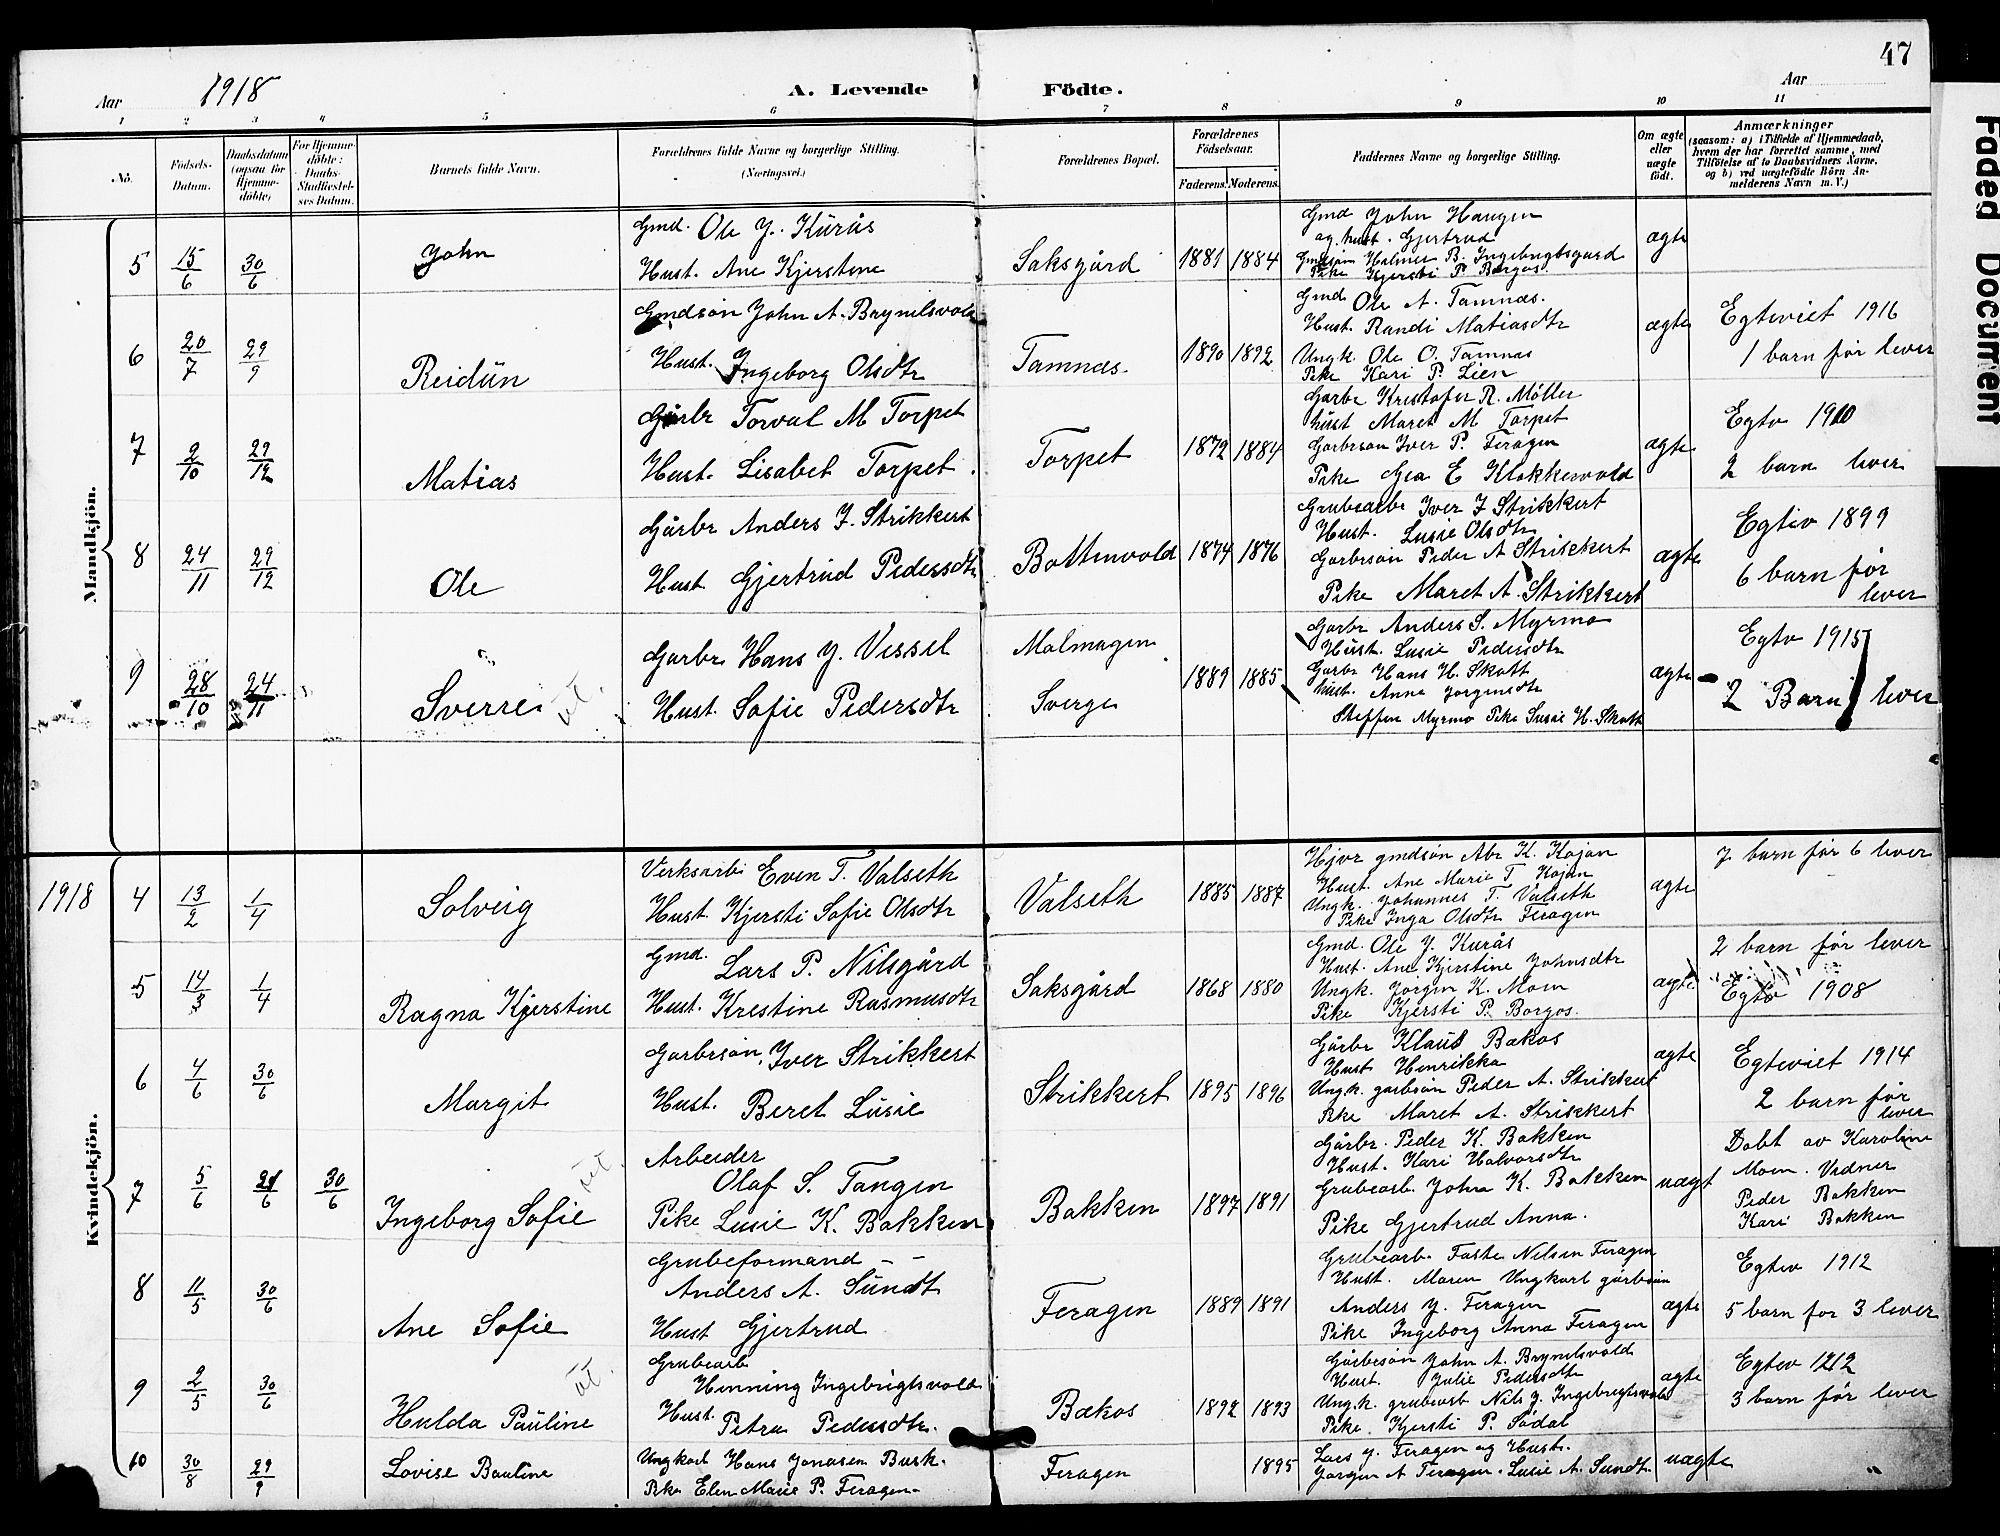 47
Aar 1918
A. Levende Födte.
Aar
1 2 3 4 5 6 7 8 9 10 11
No.
Födsels-Datum.
Daabsdatum (ogsaa for Hjemme-döbte)
For Hjemme-döbte: Daabs-Stadfæstel-ses Datum.
Barnets fulde Navn.
Forældrenes fulde Navne og borgerlige Stilling. (Næringsvei.)
Forældrenes Bopæl.
Forældrenes Födselsaar.
Faderens. Moderens.
Faddernes Navne og borgerlige Stilling.
Om ægte eller uægte födt.
Anmærkninger
(saasom: a) i Tilfælde af Hjemmedaab, hvem der har forrettet samme, med Tilföielse af to Daabsvidners Navne, og b) ved uægtefödte Börn An-melderens Navn m. V.)
Mandkjön.
5 15/6 30/6 John
Gmd. Ole J. Kurås
Hust. Ane Kjerstine
Saksgård 1881 1884
Gmd John Haugen
og hust. Gjertrud
Gmdsøn Halmer B. Ingebrigtsgard
Pike Kjersti P. Borgos
ægte
6 20/7 29/9 Reidun
Gmdsøn John A. Brynilsvold
Hust. Ingeborg Olsdtr
Tamnæs. 1890 1892
Gmd Ole A. Tamnæs.
Hust. Randi Matiasdtr
Ungk. Ole O. Tamnæs
Pike Kari P. Lien
ægte
Egteviet 1916
1 barn før lever
7 2/10 29/12 Matias
Gårbr Torval M Torpet
Hust. Lisabet Torpet.
Torpet 1872 1884
Garbr Kristofer R. Møller
hust Maret M Torpet
Garbrsøn Iver P. Feragen
Pike Gea E Klokkervold
ægte
Egtv 1910
2 barn lever
8 24/11 29/12 Ole
Gårbr Anders J. Strikkert
Hust Gjertrud Pedersdtr
Bottenvold 1874 1876
Grubearbr Iver J Strikkert
Hust. Lusie Olsdtr
Garbrsøn Peder A Strikkert
Pike Maret A. Strikkert
ægte
Egtev 1899
6 barn før
lever
9 28/10 24/11 Sverre
ut.
Garbr Hans J. Vessel
Hust. Sofie Pedersdtr
Malmagen
Sverge
1889 1885
Garbr Anders S. Myrmo
Hust. Lusie Pedersdtr
Garbr Hans H. Skott
hust. Anna Jørgensdtr
Steffen Myrmo Pike Susie H. Skott
ægte
Egtv 1915
2 Barn lever
Kvindekjön.
1918 4 13/2 1/4 Solveig
Verksarb Even T. Valseth
Hust. Kjersti Sofie Olsdtr
Valseth 1885 1887
Hjvr gmdsøn Abr K. Kojan
Hust. Ane Marie T Kojan
Ungk. Johannes T. Valseth
Pike Inga Olsdtr Feragen
ægte
7 barn før 6 lever
5 14/3 1/4 Ragna Kjerstine
Gmd. Lars P. Nilsgård
Hust. Krestine Rasmusdtr
Saksgård 1868 1880
Gmd. Ole J. Kurås
Hust. Ane Kjerstine Johnsdtr
Ungk. Jørgen K. Moen
Pike Kjersti P. Borgos.
ægte
2 barn før lever
Egtv 1908
6 4/6 30/6 Margit
Garbrsøn Iver Strikkert
Hust. Beret Lusie
Strikkert 1895 1896
Gårbr Klaus Bakos
Hust Henrikka
Ungk. garbrsøn Peder A. Strikkert
Pike Maret A. Strikkert
ægte
Egteviet 1914
2 barn før
lever
7 5/6 21/6 30/6 Ingeborg Sofie
ut.
Arbeider
Olaf S. Tangen
Pike Lusie K. Bakken
Bakken 1897 1891
Gårbr. Peder K. Bakken
Hust. Kari Halvorsdtr
Grubearb. John K. Bakken
Pike Gjertrud Anna.
uægt
Døbt av Karoline
Moen. Vidner
Peder Bakken
Kari Bakken
8 11/5 30/6 Ane Sofie
Grubeformand
Anders A. Sundt
Hust Gjertrud
Feragen 1889 1891
Grubearb. Faste Nilsen Feragen
Hust. Maren Ungkarl gårbrsøn
Anders J. Feragen
Pike Ingeborg Anna Feragen
ægte
Egtev 1912
5 barn før 3 lever
9 2/5 30/6 Hulda Pauline
ut.
Grubearb
Henning Ingebrigtsvold
Hust. Petra Pedersdtr.
Bakos 1892 1893
Gårbrsøn John A. Brynilsvold
Hust. Julie Pedersdtr
Ungk. grubearb Nils J. Ingebrigtsvold
Pike. Kjersti P. Sødal
ægte
Egtev 1212
3 barn før lever
10 30/8 29/9 Lovise Bauline
Ungkarl Hans Jonasen Busk.
Pike Elen Marie P. Feragen
Feragen 1895
Lars J. Feragen og Hust.
Jørgen A Feragen. Lusie A. Sundt
uægte
Faded Document